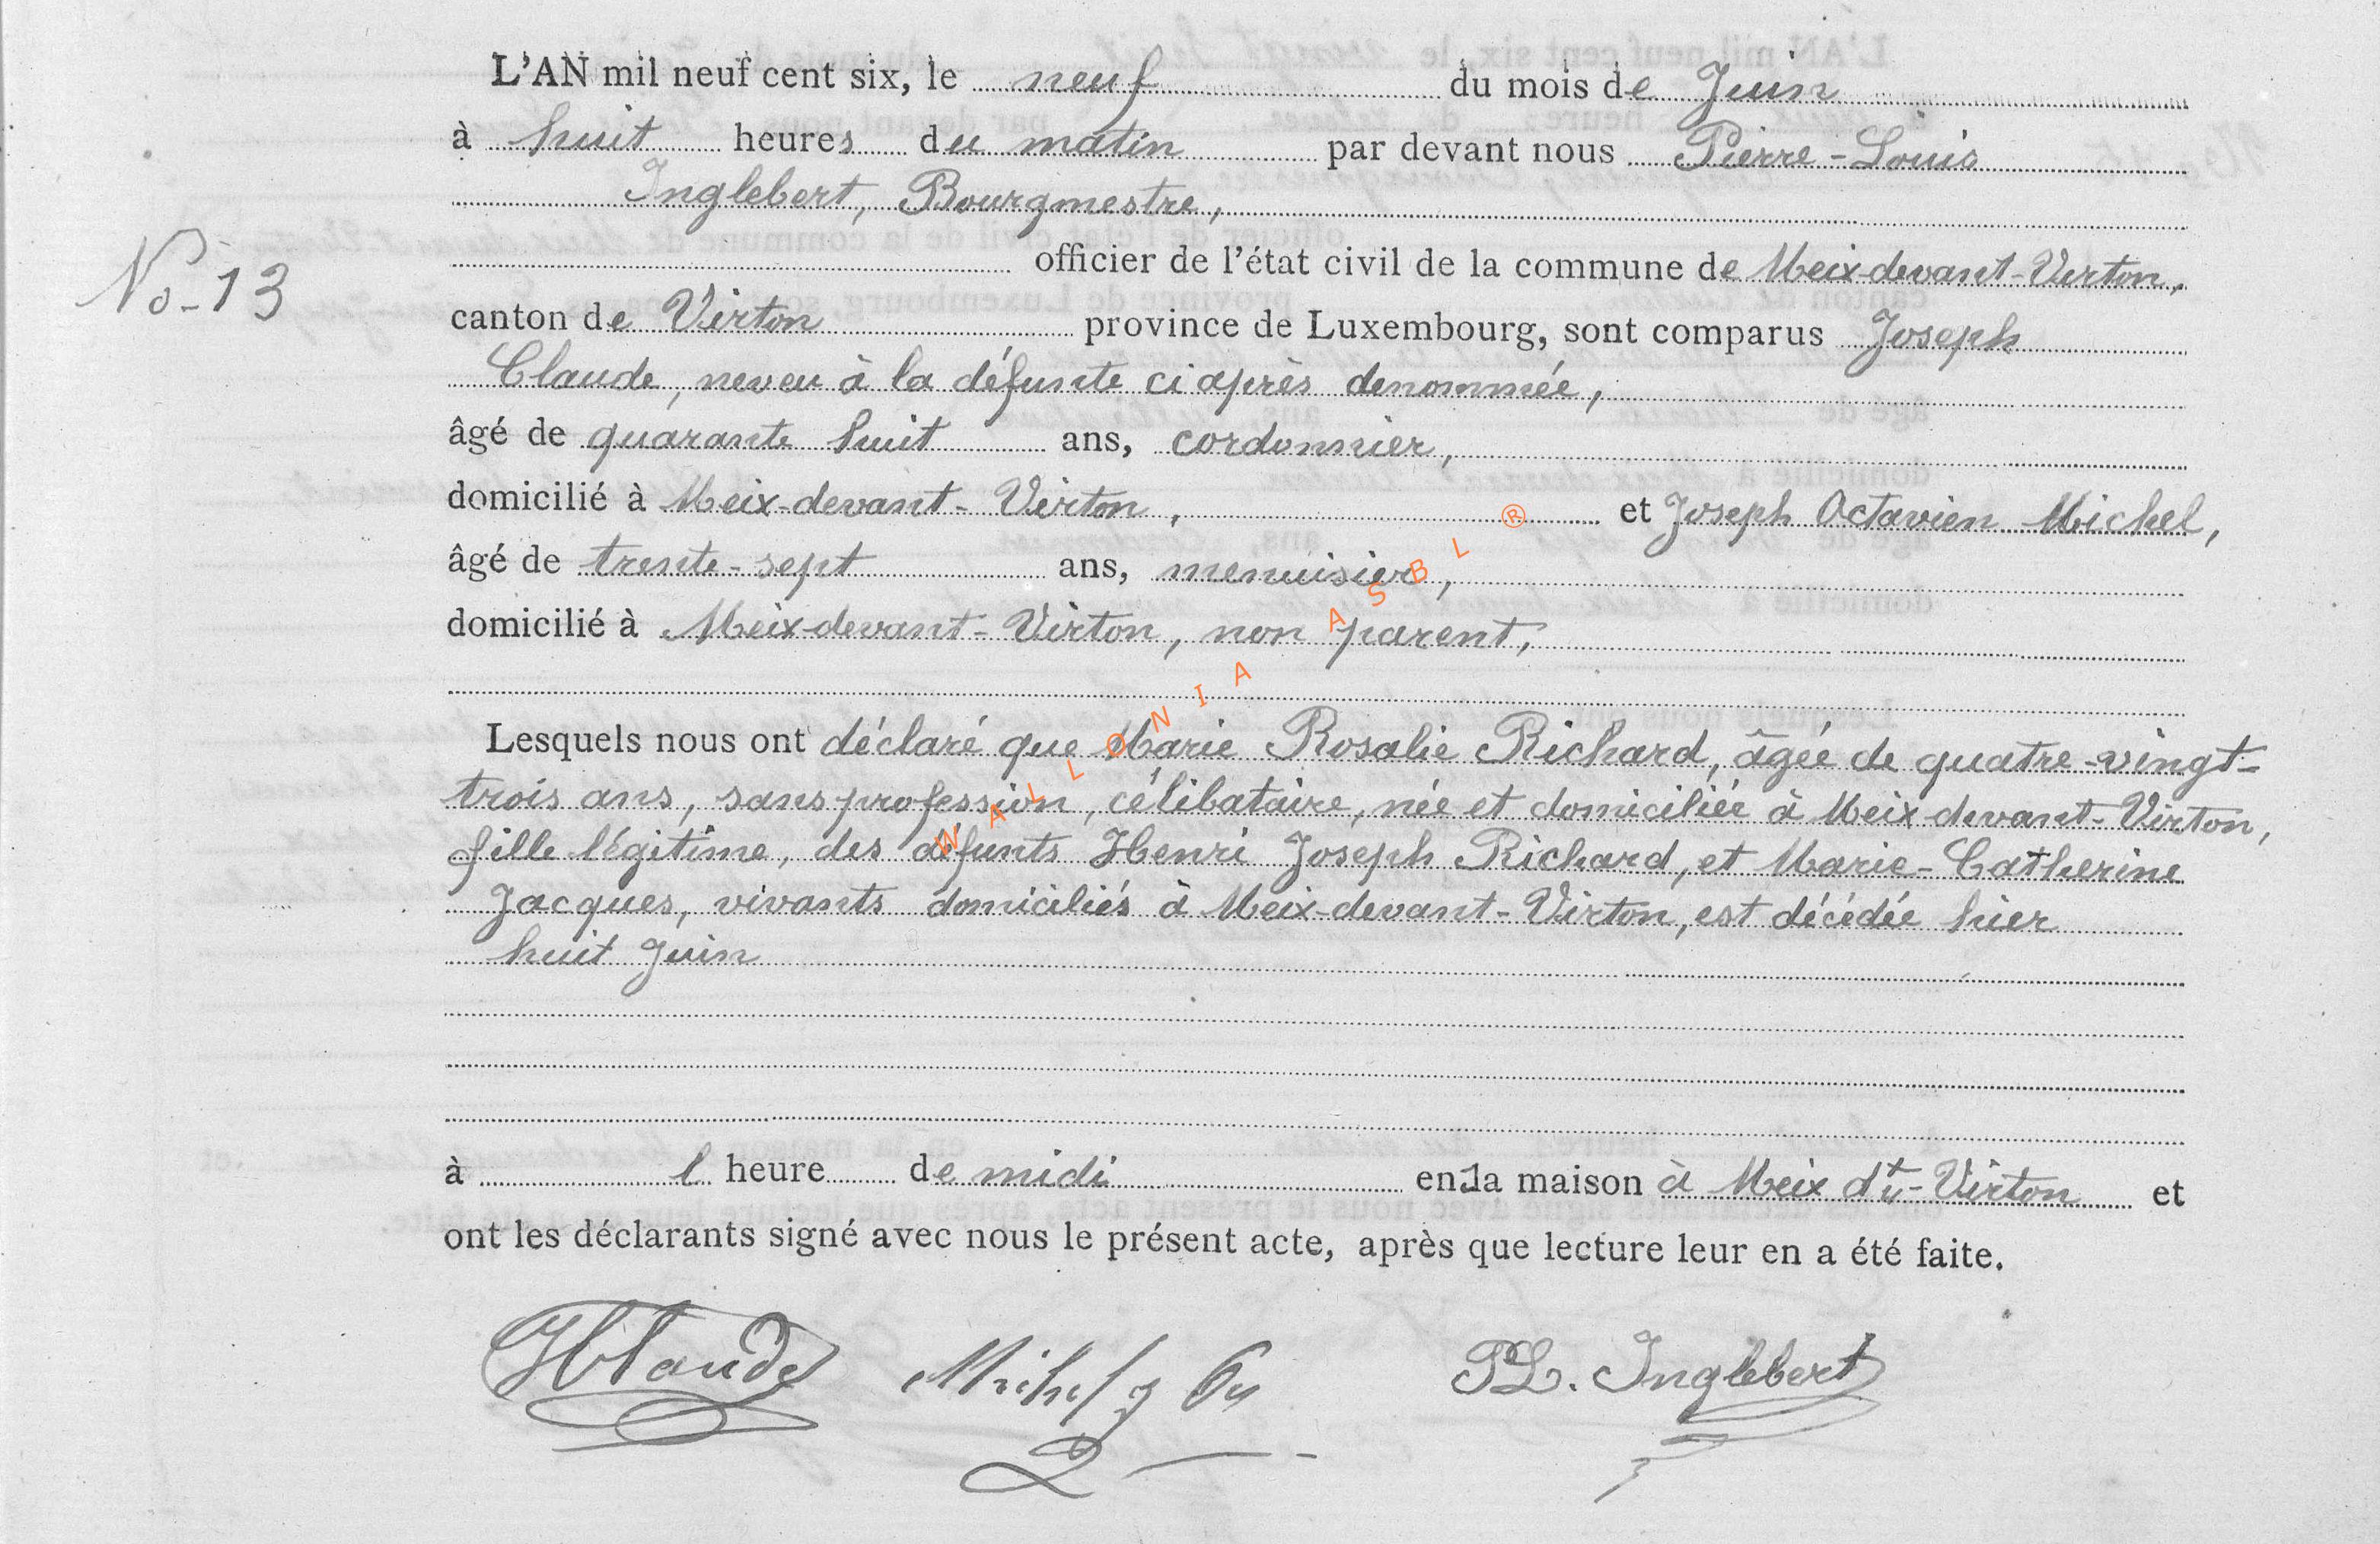 L'AN mil neuf cent six, le neuf du mois de Juin
à huit heures du matin par devant nous Pierre-Louis
Inglebert, Bourgmestre,
officier de l'état civil de la commune de Meix-devant-Virton,
No-13
canton de Virton province de Luxembourg, sont comparus Joseph
Claude, neveu à la défunte ci après denommée,
âgé de quarante huit ans, cordonnier,
domicilié à Meix-devant-Virton, et Joseph Octavien Michel,
âgé de trente-sept ans, menuisier,
domicilié à Meix-devant-Virton, non parent,
Lesquels nous ont déclaré que Marie Rosalie Richard, âgée de quatre-vingt-
trois ans, sans profession, célibataire, née et domiciliée à Meix devant-Virton,
fille légitime, des défunts Henri Joseph Richard, et Marie-Catherine
Jacques, vivants domiciliés à Meix-devant-Virton, est décédée hier
huit Juin
à 1 heure de midi en la maison à Meix dt-Virton et
ont les déclarants signé avec nous le présent acte, après que lecture leur en a été faite.
JClaude Michel J PL. Inglebert
WALLONIA ASBL ®